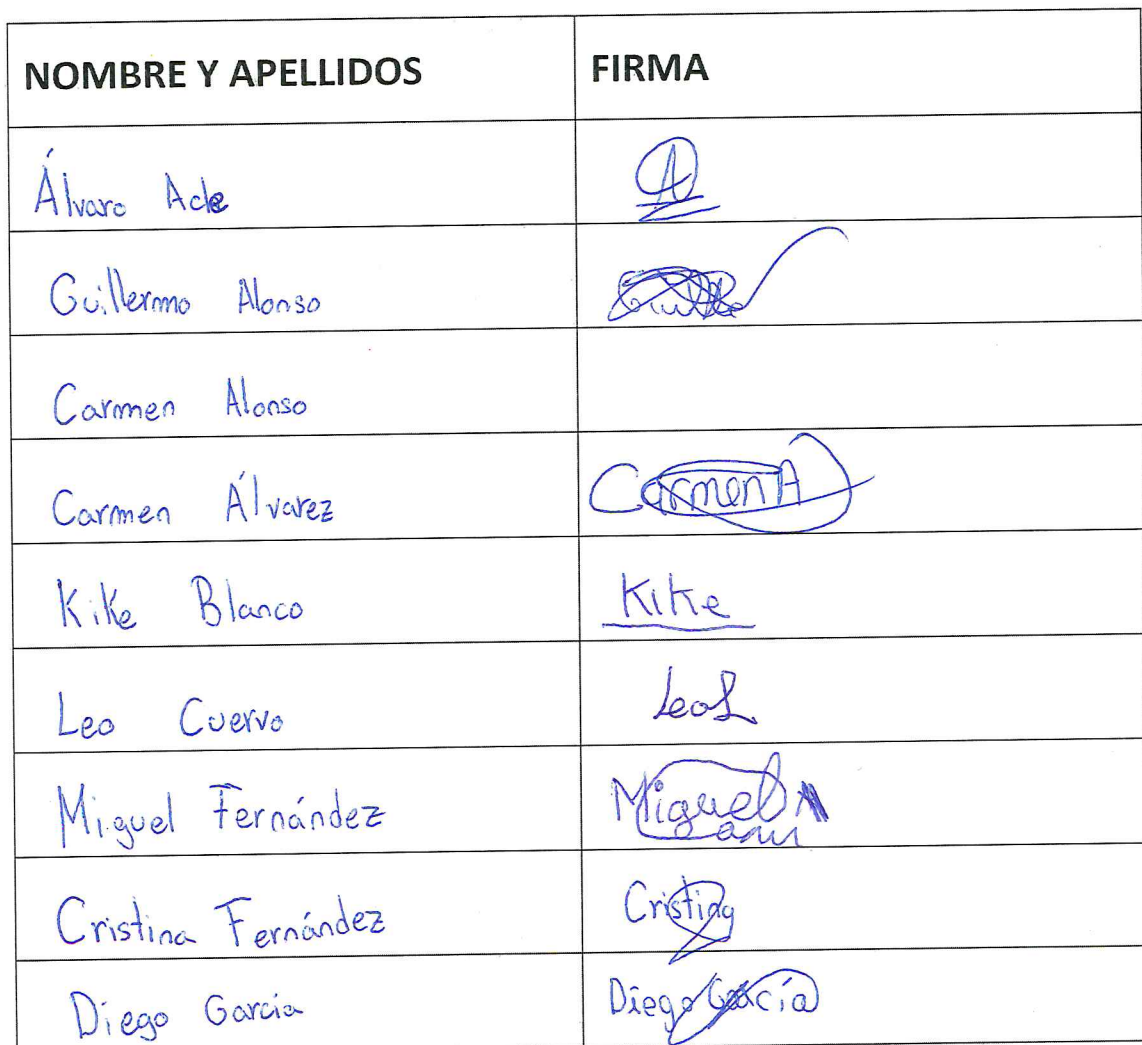 NOMBRE Y APELLIDOS FIRMA
Álvaro Ade A
Guillermo Alonso Guille
Carmen Alonso
Carmen Álvarez Carmen A
Kike Blanco Kike
Leo Cuervo Leo L
Miguel Fernández Miguel
Cristina Fernández Cristina
Diego Garcia Diego García